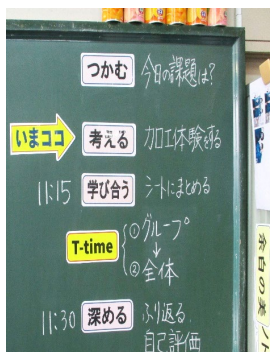 つかむ 今日の課題は?
いまココ 考える 加工体験をする
11:15 学び合う シートにまとめる
T-time ①グループ
↓
②全体
11:30 深める ふり返る
自己評価
余白の美